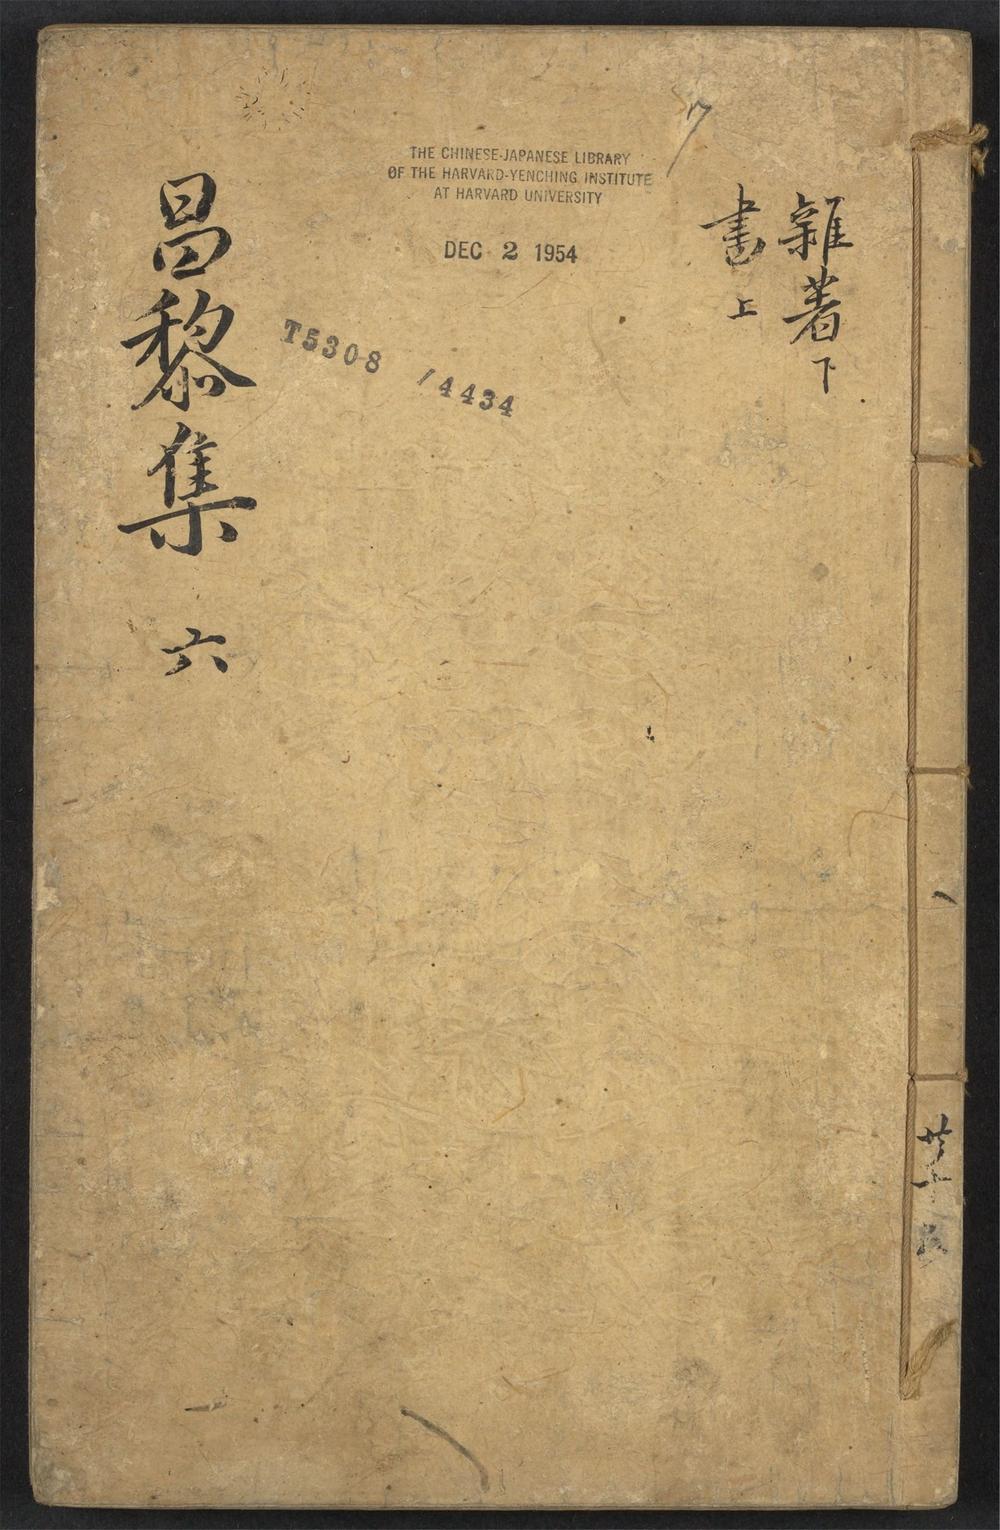 雜著下
書上
THE CHINESE-JAPANESE LIBRARY
OF THE HARVARD-YENCHING INSTITUTE
AT HARVARD UNIVERSITY
DEC 2 1954
T5308 /4434
昌黎集 六